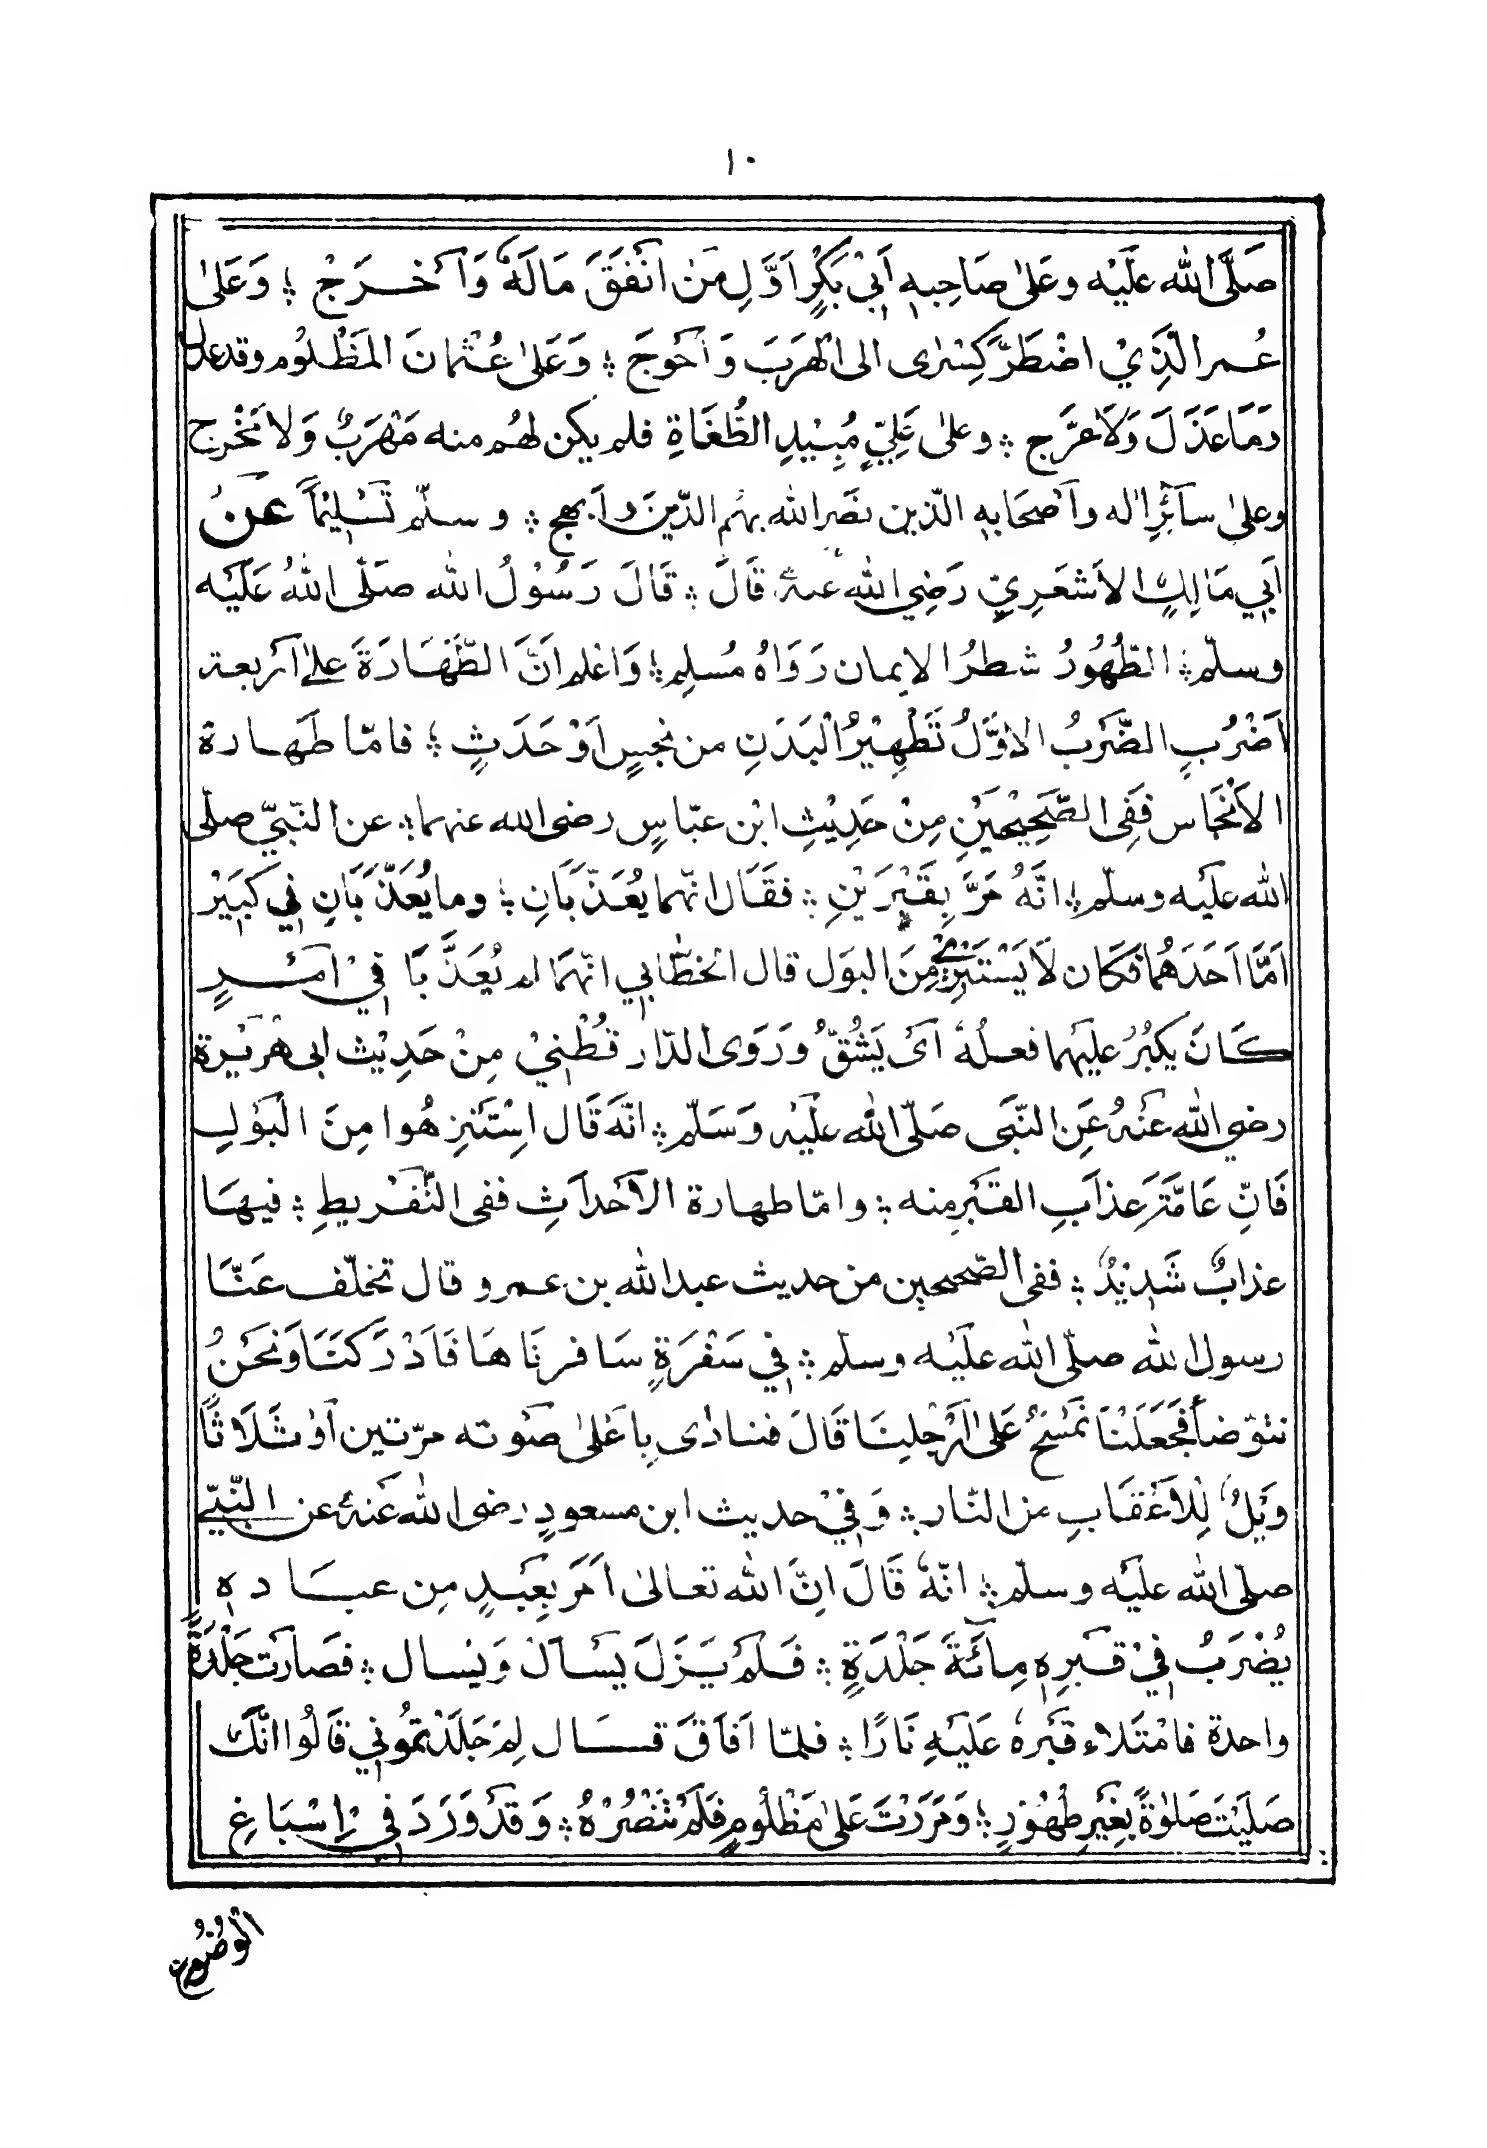 ١٠
صَلَّى الله عَلَيْه وعَلىٰ صَاحِبِه اَبِيْ بَكْرٍ اَوَّلِ مَنْ اَنْفَقَ مَالَهٗ وَاَخْرَجْ ؞ وَعَلىٰ
عُمر الَّذِيْ اضْطَرَّ كِسْرٰى الى الْهَرَبَ وَاَحْوجَ ؞ وَعَلىٰ عُثْمَانَ المَظْلُوْم وقد عدل
وَمَا عَذَلَ وَلَا عَرَّج ؞ وعلىٰ عَلِيٍّ مُبِيْدِ الطُّغَاةِ فلم يكن لهُم منه مَهْرَبٌ وَلا مَخْرج
وعلىٰ سَآئِرِ اٰله وَاَصْحَابِه الّذين نصَر الله بهُم الدّين وابهج ؞ وسلّم تَسْلِيْمًا عَنْ
اَبِي مَالِكٍ الاَشعَرِيِّ رَضِي الله عنهُ قَالَ ؞ قَالَ رَسُوْلُ الله صَلَّى اللهُ عَلَيْه
وسلّم ؞ الطُّهُوْرُ شطرُ الايمان رَوَاهُ مُسلِم ؞ وَاعْلم انَّ الطَّهَارَةَ علىٰ اَرْبعة
اَضْرُبٍ الضَّرْبُ الاَوَّلُ تَطْهِيْرُ الْبَدَنِ من نجسٍ اَوْ حَدَثٍ ؞ فامّا طَهارة
الاَنْجَاس فَفِى الصَّحِيْحَيْنِ مِنْ حَدِيْثِ ابن عبّاسٍ رضى الله عنهما ؞ عن النّبيّ صلّى
الله عليْه وسلّم ؞ انَّهُ مَرَّ بِقَبْرَيْنِ ؞ فقَال انّهما يُعَذَّبَانِ ؞ وما يُعَذَّبَانِ فِي كَبِيْر
اَمَّا اَحَدَهُمَا فَكَان لَا يَسْتَنْزِهُ مِنَ البَول قال الخطَّابي انّهمَا لم يُعَذَّبَا فِيْ اَمْرٍ
كَانَ يكبُرُ عليهما فعلُهٗ اَىْ يَشُقُّ وَرَوَى الدّار قُطْنِيْ مِنْ حَدِيْث ابى هُرَيْرة
رضي الله عَنْهُ عَنِ النَّبِى صَلّى الله عليْه وَسَلّم ؞ انَّهَ قَال اِسْتَنْزِهُوا مِنَ الْبَوْلِ
فَانِّ عَامَّةَ عذَابِ القبْرِ منه ؞ وامّا طهارة الاَحْداثِ ففى التَّفْرِيطِ ؞ فيهَا
عذابٌ شَدِيْدٌ ؞ ففى الصّحيحين من حديث عبد الله بن عمرو قال تخلّف عَنَّا
رسول الله صلّى الله علَيْه وسلم ؞ فِي سَفْرَةٍ سَافرنَاهَا فَاَدْرَكَنَا وَنَحْنُ
نتوّضأ فَجَعَلْنَا نَمْسَحُ عَلىٰ اَرْجُلِنَا قَالَ فنادٰى بِاَعْلىٰ صَوْته مرّتين اَوْ ثَلَاثًا
وَيْلٌ لِلاَعْقَابِ من النّار ؞ وَفِيْ حديث ابن مسعودٍ رضى الله عَنْهُ عن النّبيّ
صلّى الله عليْه وسلّم ؞ انّهٗ قَالَ اِنَّ الله تعالىٰ اَمَرَ بِعَبْدٍ مِن عبَادِهٖ
يُضْرَبُ فِيْ قبْرِهٖ مِائَةَ جَلْدَةٍ ؞ فَلَمْ يَزَلَ يَسْأَل وَيَسال ؞ فصَارت جَلْدَةً
واحدة فامْتَلاء قبْرهٗ عَلَيْهِ نَارًا ؞ فلمّا اَفَاقَ قَال لِمَ جَلَدْتمُوني قَالُوا انّكَ
صَلَيْتَ صَلوٰةً بغَيْرِ طُهُوْرٍ ؞ وَمَرَرْتَ عَلىٰ مَظْلُومٍ فَلَمْ تَنْصُرْهُ ؞ وَقَدْ وَرَدَ فِي اِسْبَاغِ
الْوُضُوء